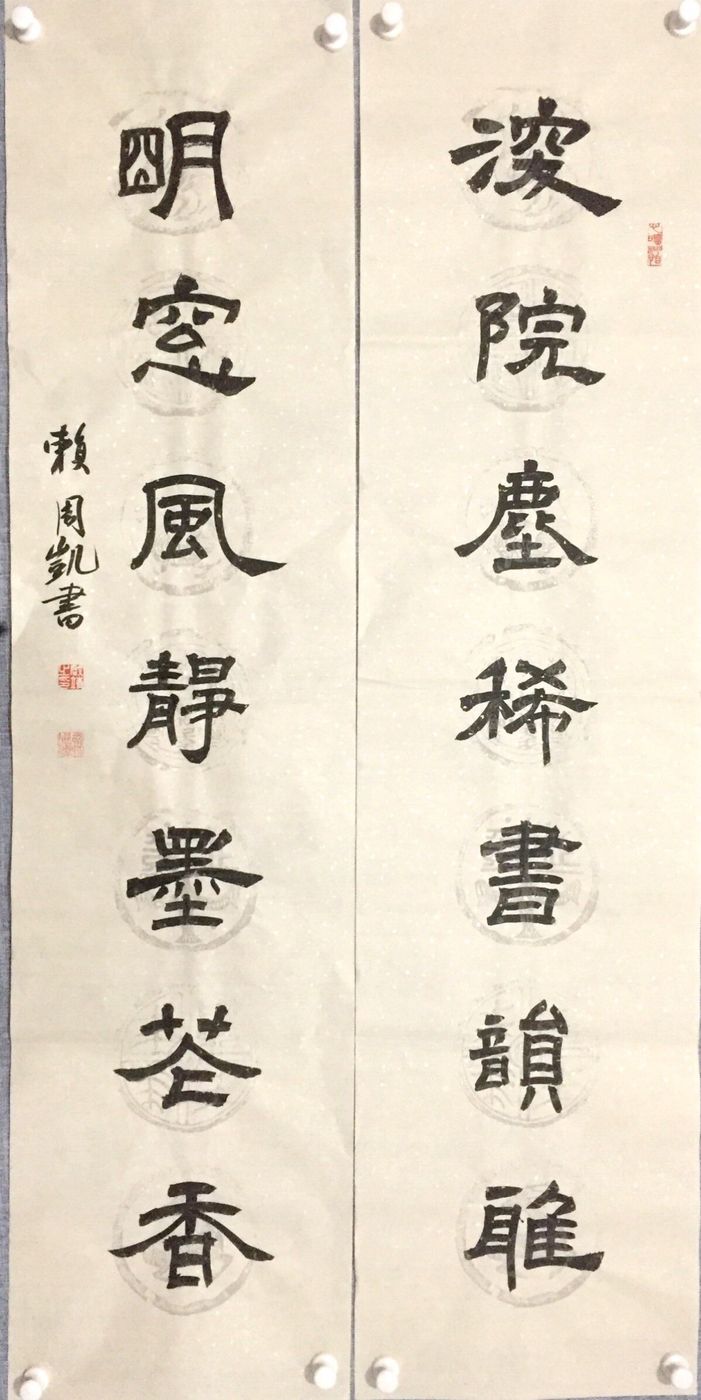 深院塵稀書韻雅
明窓風靜墨花香
賴周凱書